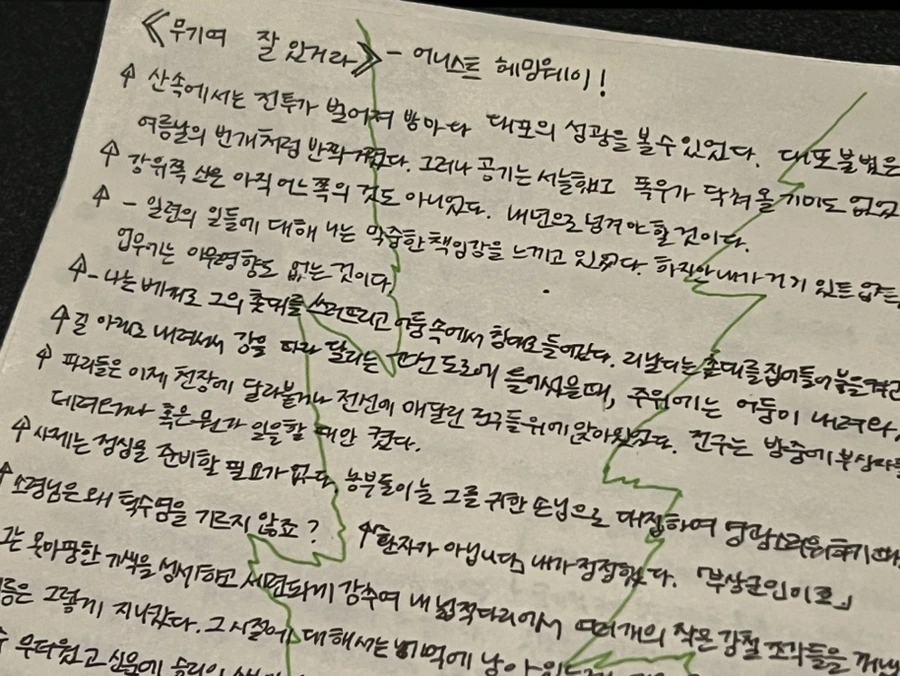 《무기여 잘 있거라》 - 어니스트 헤밍웨이!
산속에서는 전투가 벌어져 밤마다 대포의 섬광을 볼 수 있었다. 대포 불빛은
여름날의 번개처럼 반짝거렸다. 그러나 공기는 서늘했고 폭우가 닥쳐 올 기미도 없었
강 위쪽 산은 아직 어느 쪽의 것도 아니었다. 내년으로 넘겨야 할 것이다.
- 일련의 일들에 대해 나는 막중한 책임감을 느끼고 있었다. 하지만 내가 거기 있든 없든,
업무에는 아무 영향도 없는 것이다.
- 나는 베개로 그의 촛대를 쓰러뜨리고 어둠 속에서 침대로 들어갔다. 리날디는 촛대를 집어들어 불을
길 아래로 내려서서 강을 따라 달리는 도로에 들어섰을 때, 주위에는 어둠이 내려와,
파리들은 이제 천장에 달라붙거나 전선에 매달린 전구들 위에 앉아있었다. 전구는 밤중에 부상자를
데려오거나 혹은 뭔가 일을 할 때만 켰다.
사제는 점심을 준비할 필요가 없다. 농부들이 늘 그를 귀한 손님으로 대접하여
소령님은 왜 턱수염을 기르지 않죠? 환자가 아닙니다, 내가 정정했다. 「부상군인이오」
그는 못마땅한 기색을 하고 감추며 내 넓적다리에서 여러개의 작은 강철 조각들을 꺼냈
여름은 그렇게 지나갔다. 그 시절에 대해서는 별 기억에 남아
무더웠고 신문에 승리의